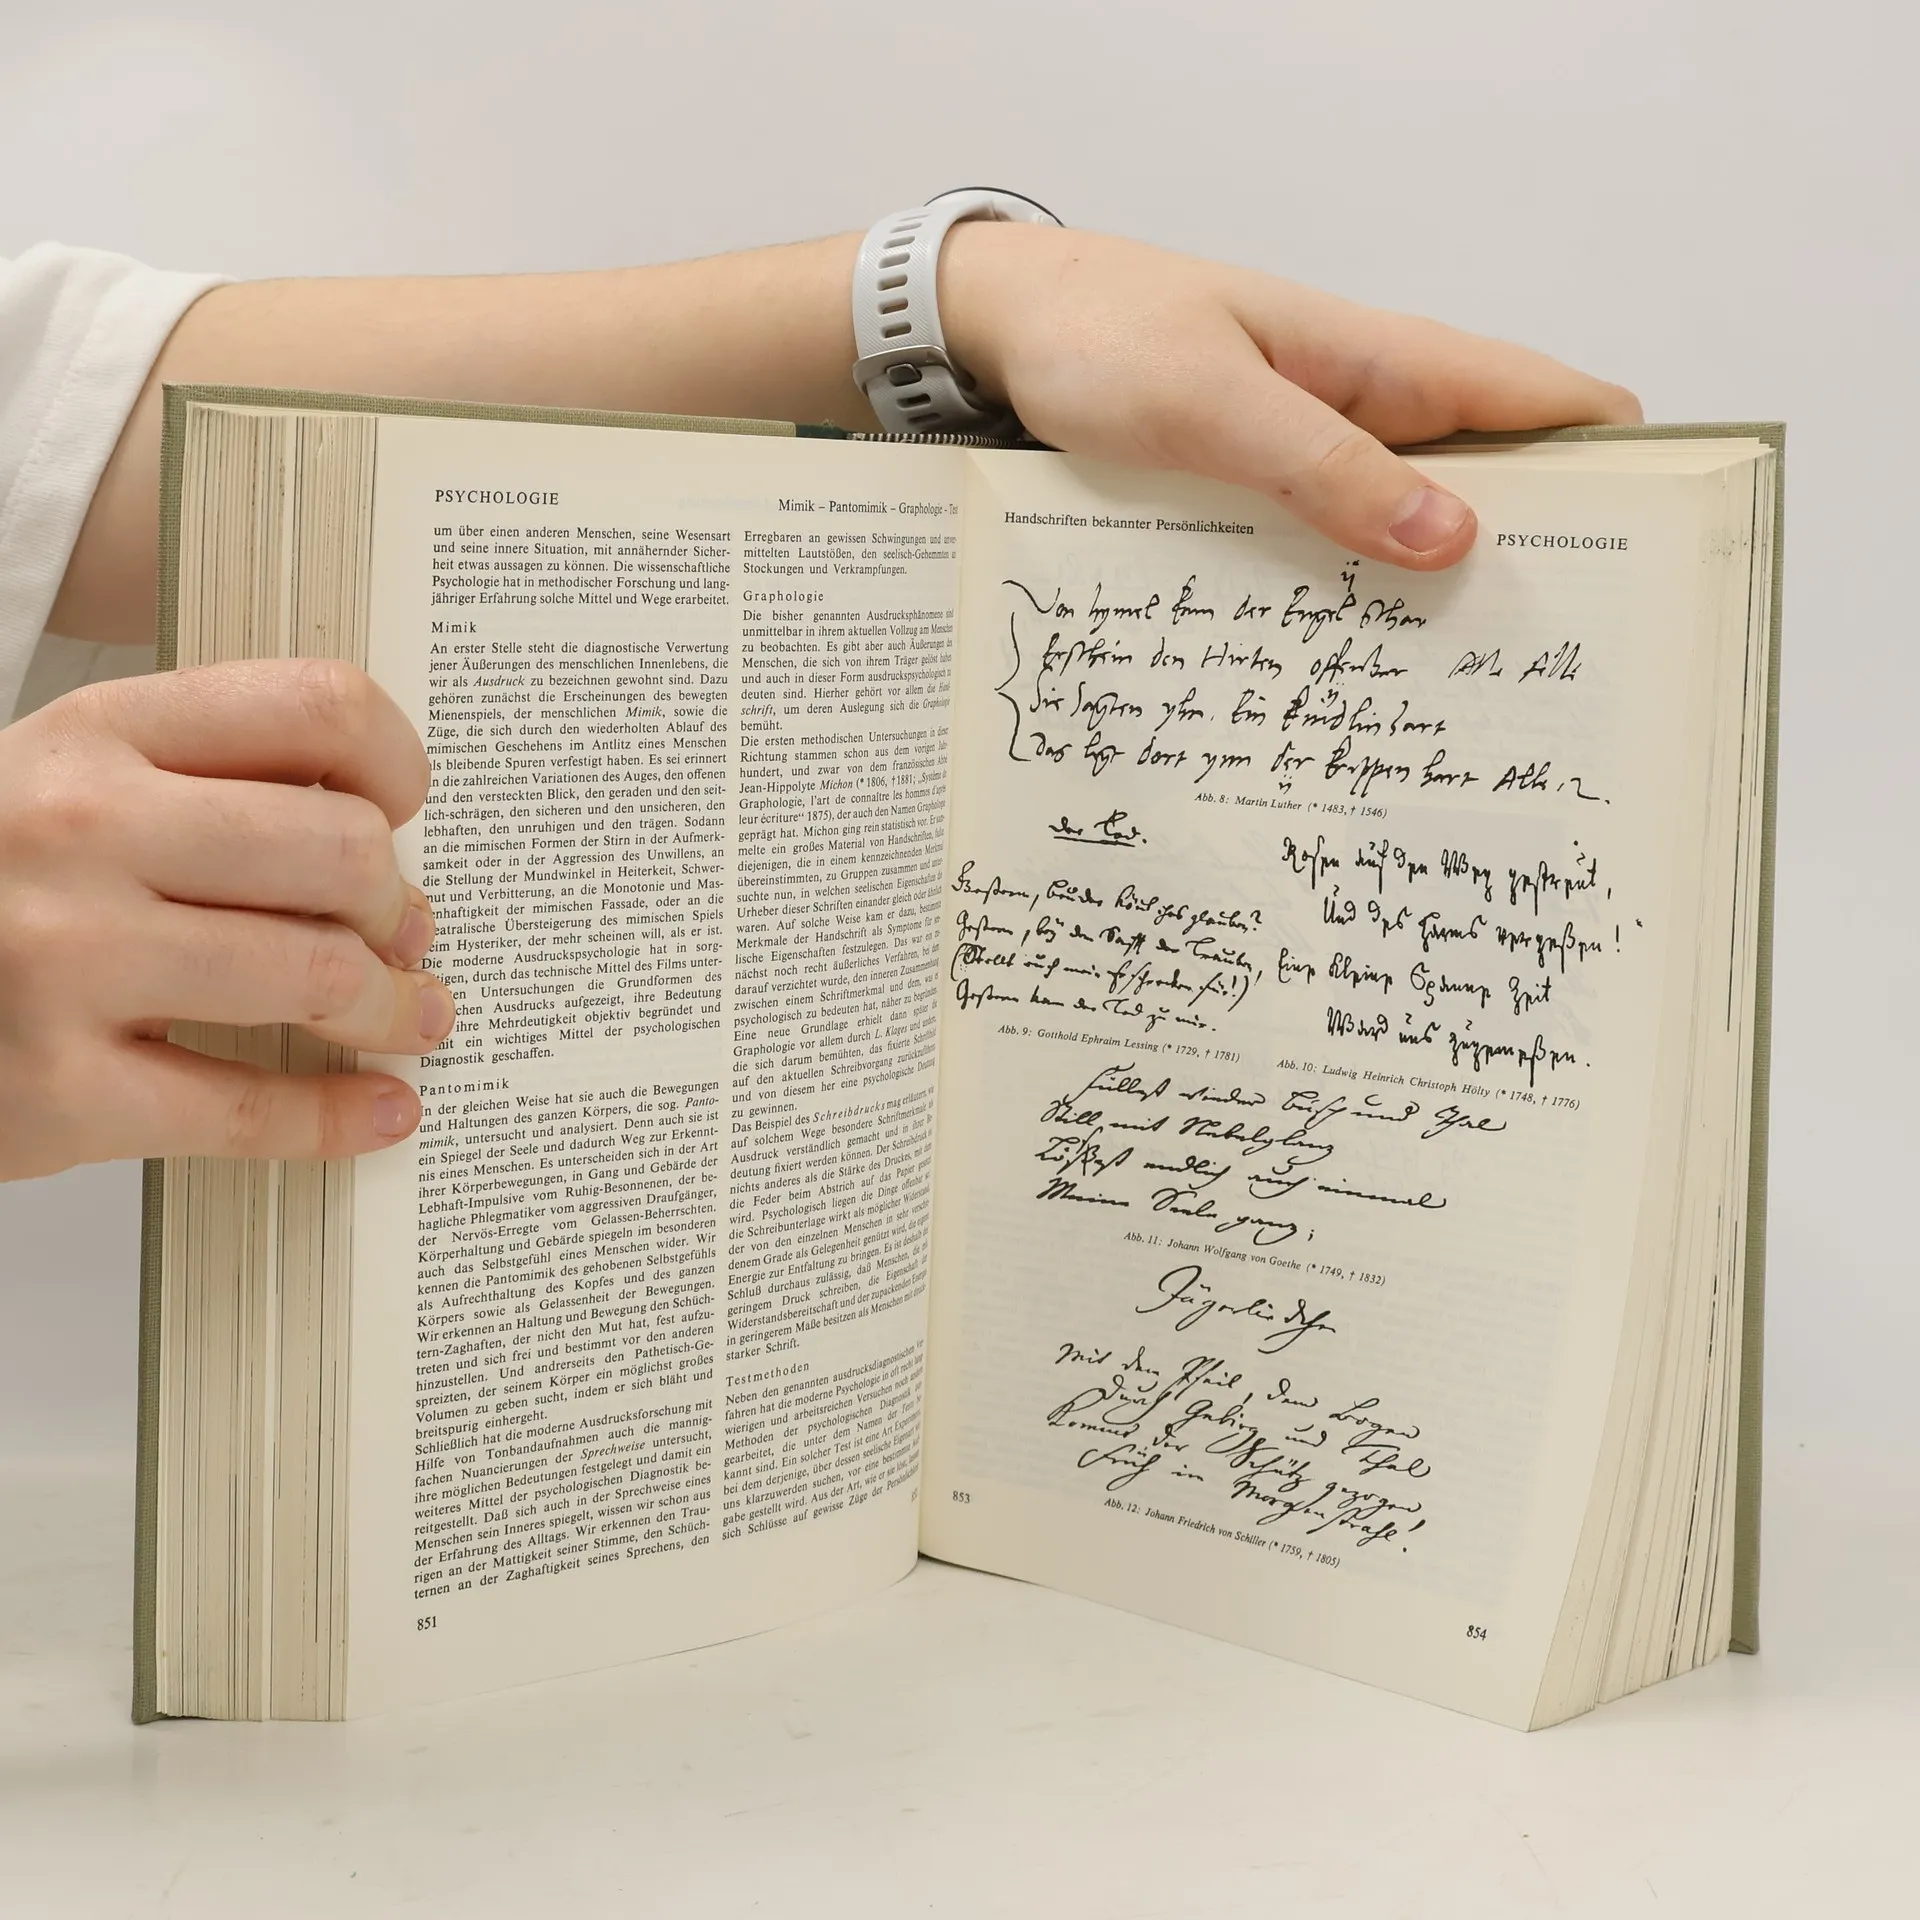 PSYCHOLOGIE
Mimik – Pantomimik – Graphologie –
um über einen anderen Menschen, seine Wesensart
und seine innere Situation, mit annähernder Sicher-
heit etwas aussagen zu können. Die wissenschaftliche
Psychologie hat in methodischer Forschung und lang-
jähriger Erfahrung solche Mittel und Wege erarbeitet.
Mimik
An erster Stelle steht die diagnostische Verwertung
jener Äußerungen des menschlichen Innenlebens, die
wir als Ausdruck zu bezeichnen gewohnt sind. Dazu
gehören zunächst die Erscheinungen des bewegten
Mienenspiels, der menschlichen Mimik, sowie die
Züge, die sich durch den wiederholten Ablauf des
mimischen Geschehens im Antlitz eines Menschen
als bleibende Spuren verfestigt haben. Es sei erinnert
an die zahlreichen Variationen des Auges, den offenen
und den versteckten Blick, den geraden und den seit-
lich-schrägen, den sicheren und den unsicheren, den
lebhaften, den unruhigen und den trägen. Sodann
an die mimischen Formen der Stirn in der Aufmerk-
samkeit oder in der Aggression des Unwillens, an
die Stellung der Mundwinkel in Heiterkeit, Schwer-
mut und Verbitterung, an die Monotonie und Mas-
enhaftigkeit der mimischen Fassade, oder an die
eatralische Übersteigerung des mimischen Spiels
eim Hysteriker, der mehr scheinen will, als er ist.
Die moderne Ausdruckspsychologie hat in sorg-
tigen, durch das technische Mittel des Films unter-
en Untersuchungen die Grundformen des
chen Ausdrucks aufgezeigt, ihre Bedeutung
ihre Mehrdeutigkeit objektiv begründet und
mit ein wichtiges Mittel der psychologischen
Diagnostik geschaffen.
Pantomimik
In der gleichen Weise hat sie auch die Bewegungen
und Haltungen des ganzen Körpers, die sog. Panto-
mimik, untersucht und analysiert. Denn auch sie ist
ein Spiegel der Seele und dadurch Weg zur Erkennt-
nis eines Menschen. Es unterscheiden sich in der Art
ihrer Körperbewegungen, in Gang und Gebärde der
Lebhaft-Impulsive vom Ruhig-Besonnenen, der be-
hagliche Phlegmatiker vom aggressiven Draufgänger,
der Nervös-Erregte vom Gelassen-Beherrschten.
Körperhaltung und Gebärde spiegeln im besonderen
auch das Selbstgefühl eines Menschen wider. Wir
kennen die Pantomimik des gehobenen Selbstgefühls
als Aufrechthaltung des Kopfes und des ganzen
Körpers sowie als Gelassenheit der Bewegungen.
Wir erkennen an Haltung und Bewegung den Schüch-
tern-Zaghaften, der nicht den Mut hat, fest aufzu-
treten und sich frei und bestimmt vor den anderen
hinzustellen. Und andrerseits den Pathetisch-Ge-
spreizten, der seinem Körper ein möglichst großes
Volumen zu geben sucht, indem er sich bläht und
breitspurig einhergeht.
Schließlich hat die moderne Ausdrucksforschung mit
Hilfe von Tonbandaufnahmen auch die mannig-
fachen Nuancierungen der Sprechweise untersucht,
ihre möglichen Bedeutungen festgelegt und damit ein
weiteres Mittel der psychologischen Diagnostik be-
reitgestellt. Daß sich auch in der Sprechweise eines
Menschen sein Inneres spiegelt, wissen wir schon aus
der Erfahrung des Alltags. Wir erkennen den Trau-
rigen an der Mattigkeit seiner Stimme, den Schüch-
ternen an der Zaghaftigkeit seines Sprechens, den
851
Erregbaren an gewissen Schwingungen und
mittelten Lautstößen, den seelisch-Gehemmten
Stockungen und Verkrampfungen.
Graphologie
Die bisher genannten Ausdrucksphänomene sind
unmittelbar in ihrem aktuellen Vollzug am Menschen
zu beobachten. Es gibt aber auch Äußerungen des
Menschen, die sich von ihrem Träger gelöst haben
und auch in dieser Form ausdruckspsychologisch zu
deuten sind. Hierher gehört vor allem die Hand-
schrift, um deren Auslegung sich die Graphologie
bemüht.
Die ersten methodischen Untersuchungen in dieser
Richtung stammen schon aus dem vorigen Jahr-
hundert, und zwar von dem französischen Abbé
Jean-Hippolyte Michon (* 1806, † 1881; „Système de
Graphologie, l'art de connaître les hommes d'après
leur écriture“ 1875), der auch den Namen Graphologie
geprägt hat. Michon ging rein statistisch vor. Er sam-
melte ein großes Material von Handschriften, faßte
diejenigen, die in einem kennzeichnenden Merkmal
übereinstimmten, zu Gruppen zusammen und unter-
suchte nun, in welchen seelischen Eigenschaften die
Urheber dieser Schriften einander gleich oder ähnlich
waren. Auf solche Weise kam er dazu, bestimmte
Merkmale der Handschrift als Symptome für see-
lische Eigenschaften festzulegen. Das war ein zu-
nächst noch recht äußerliches Verfahren, bei dem
darauf verzichtet wurde, den inneren Zusammenhang
zwischen einem Schriftmerkmal und dem, was es
psychologisch zu bedeuten hat, näher zu begründen.
Eine neue Grundlage erhielt dann später die
Graphologie vor allem durch L. Klages und andere,
die sich darum bemühten, das fixierte Schriftbild
auf den aktuellen Schreibvorgang zurückzuführen
und von diesem her eine psychologische Deutung
zu gewinnen.
Das Beispiel des Schreibdrucks mag erläutern, wie
auf solchem Wege besondere Schriftmerkmale als
Ausdruck verständlich gemacht und in ihrer Be-
deutung fixiert werden können. Der Schreibdruck ist
nichts anderes als die Stärke des Druckes, mit dem
die Feder beim Abstrich auf das Papier gesetzt
wird. Psychologisch liegen die Dinge offenbar so:
die Schreibunterlage wirkt als möglicher Widerstand,
der von den einzelnen Menschen in sehr verschie-
denem Grade als Gelegenheit genützt wird, die eigene
Energie zur Entfaltung zu bringen. Es ist deshalb der
Schluß durchaus zulässig, daß Menschen, die mit
geringem Druck schreiben, die Eigenschaft der
Widerstandsbereitschaft und der zupackenden Energie
in geringerem Maße besitzen als Menschen mit druck-
starker Schrift.
Testmethoden
Neben den genannten ausdrucksdiagnostischen Ver-
fahren hat die moderne Psychologie in oft recht lang-
wierigen und arbeitsreichen Versuchen noch andere
Methoden der psychologischen Diagnostik aus-
gearbeitet, die unter dem Namen der Tests be-
kannt sind. Ein solcher Test ist eine Art Experiment,
bei dem derjenige, über dessen seelische Eigenart wir
uns klarzuwerden suchen, vor eine bestimmte Auf-
gabe gestellt wird. Aus der Art, wie er sie löst, lassen
sich Schlüsse auf gewisse Züge der Persönlichkeit
Handschriften bekannter Persönlichkeiten
PSYCHOLOGIE
Von hymel kam der Engel schar
Erschein den Hirten offenbar Alle Alle
Sie sagten yhn. Ein kindlin zart
Das ligt dort ynn der krippen hart Alle
Abb. 8: Martin Luther (* 1483, † 1546)
der Tod.
Gestern, brüder könt ihrs glauben?
Gestern, bey dem Safft der Trauben,
(Stellt euch mein Erschrecken für!)
Gestern kam der Tod zu mir.
Abb. 9: Gotthold Ephraim Lessing (* 1729, † 1781)
Rosen auf den Weg gestreut,
Und des Harms vergeßen!
Eine kleine Spanne Zeit
Ward uns zugemeßen.
Abb. 10: Ludwig Heinrich Christoph Hölty (* 1748, † 1776)
Füllest wieder Busch und Thal
Still mit Nebelglanz
Lösest endlich auch einmal
Meine Seele ganz;
Abb. 11: Johann Wolfgang von Goethe (* 1749, † 1832)
Jägerliedchen
Mit dem Pfeil, dem Bogen
Durch Gebirg und Thal
Kommt der Schütz gezogen
Früh im Morgenstrahl.
Abb. 12: Johann Friedrich von Schiller (* 1759, † 1805)
853
854